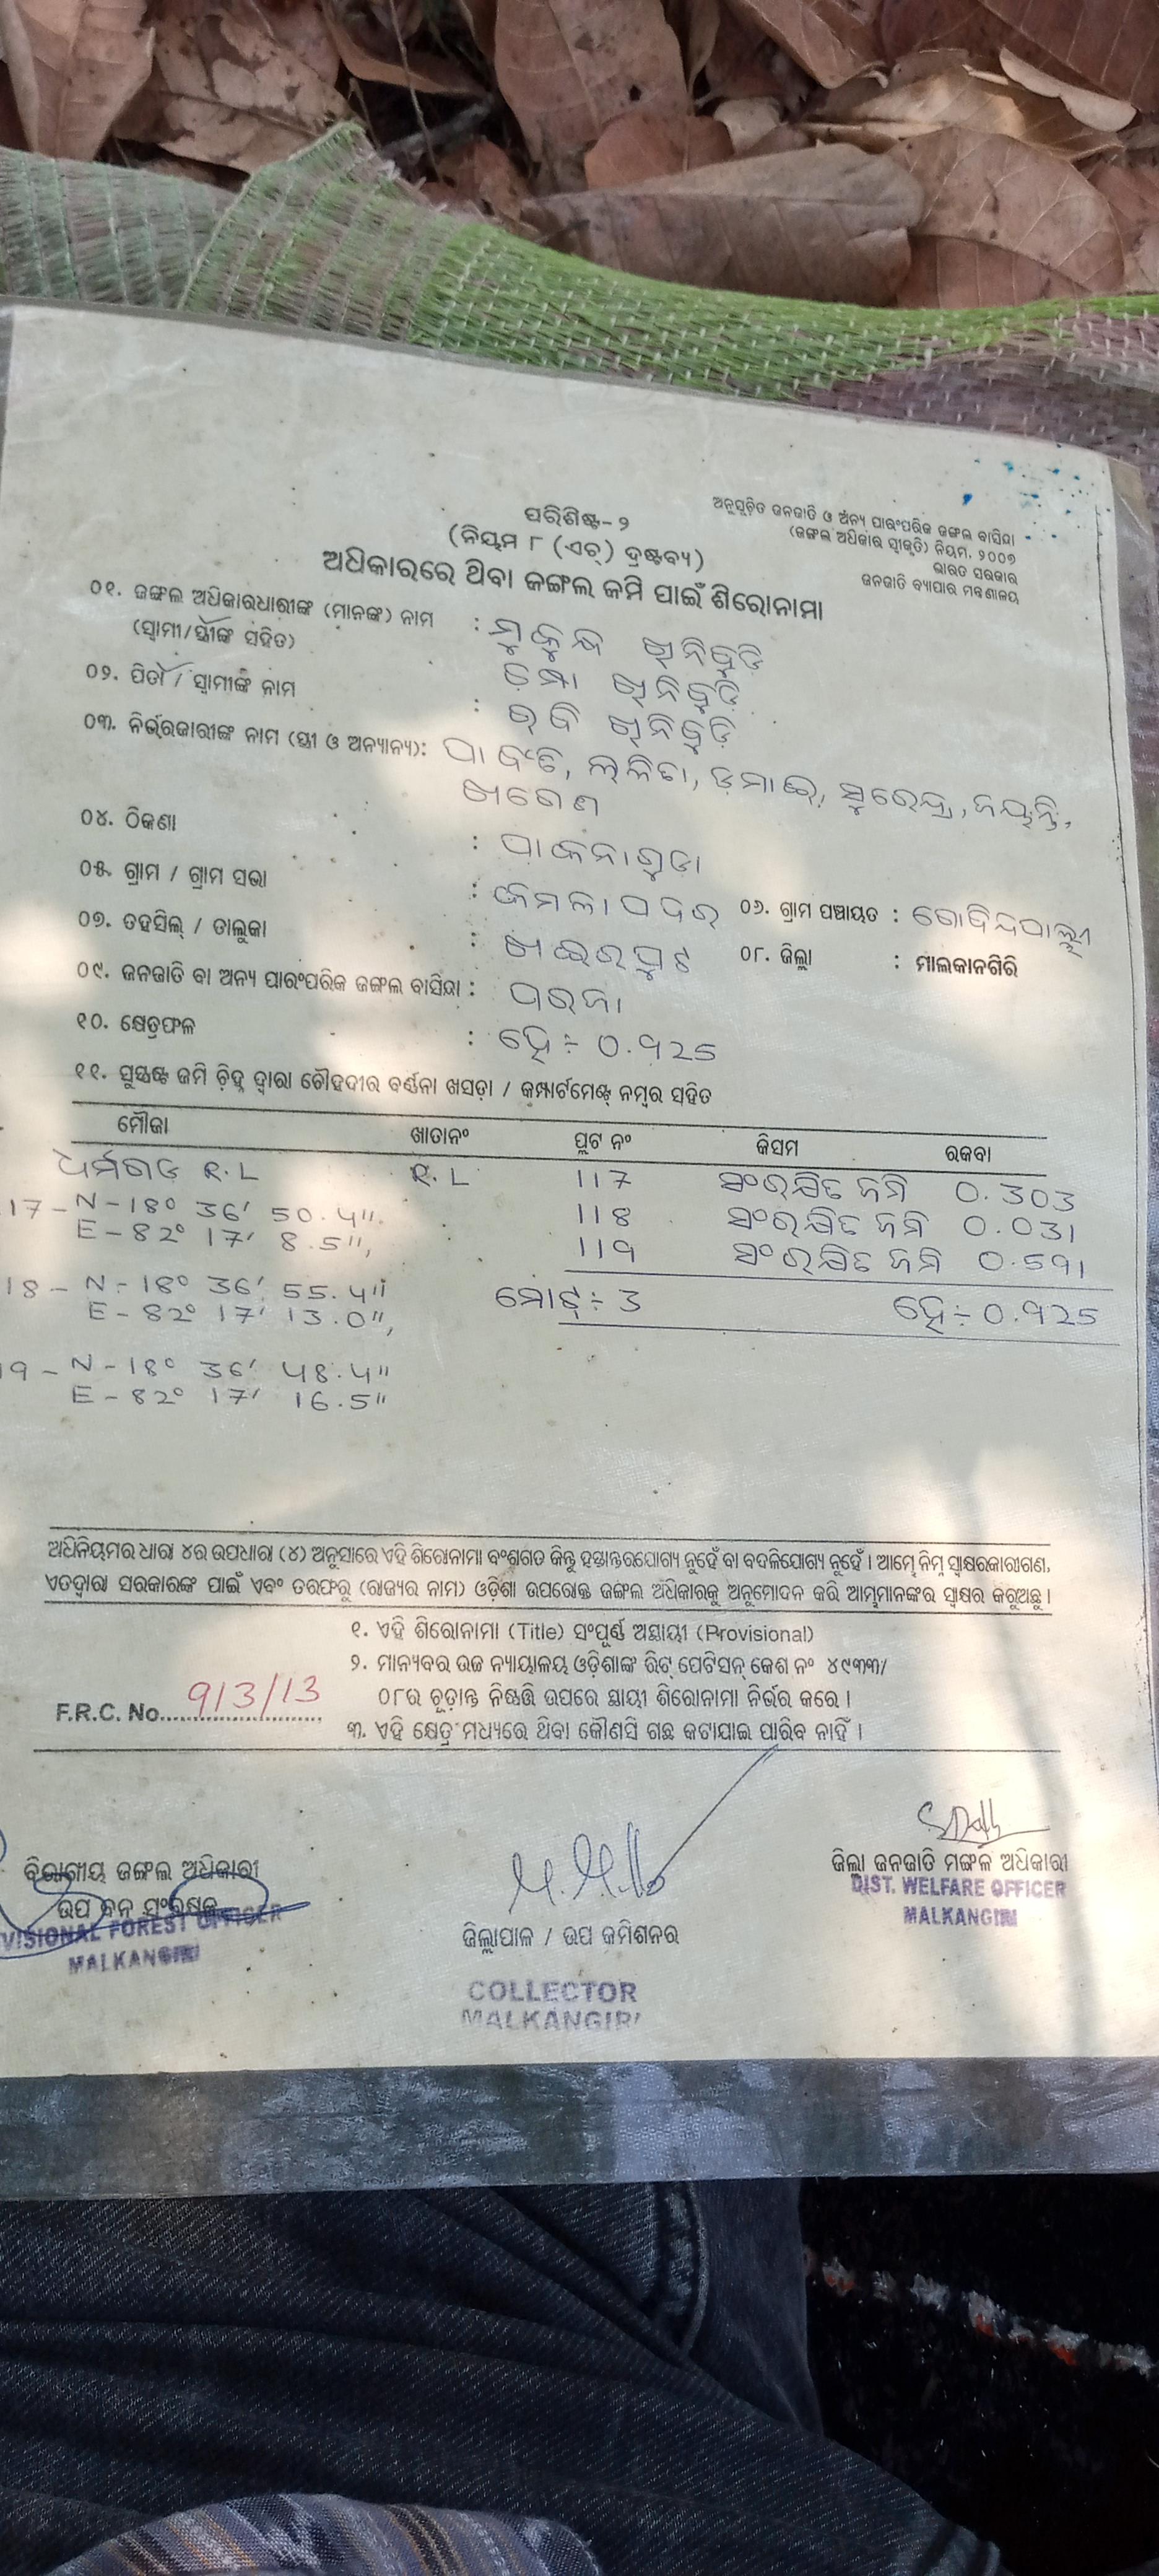 ଅନୁସୂଚିତ ଜନଜାତି ଓ ଅନ୍ୟ ପାରଂପରିକ ଜଙ୍ଗଲ ବାସିନ୍ଦା
(ଜଙ୍ଗଲ ଅଧିକାର ସ୍ୱୀକୃତି) ନିୟମ, ୨୦୦୭
ଭାରତ ସରକାର
ଜନଜାତି ବ୍ୟାପାର ମନ୍ତ୍ରଣାଳୟ
ପରିଶିଷ୍ଟ-୨
(ନିୟମ ୮ (ଏଚ୍) ଦ୍ରଷ୍ଟବ୍ୟ)
ଅଧିକାରରେ ଥିବା ଜଙ୍ଗଲ ଜମି ପାଇଁ ଶିରୋନାମା
୦୧. ଜଙ୍ଗଲ ଅଧିକାରଧାରୀଙ୍କ (ମାନଙ୍କ) ନାମ : ମୁକୁନ୍ଦ ଖିନିବୁଡ଼ି
(ସ୍ୱାମୀ/ସ୍ତ୍ରୀଙ୍କ ସହିତ) ଖିନିବୁଡ଼ି
୦୨. ପିତା / ସ୍ୱାମୀଙ୍କ ନାମ : ରବି ଖିନିବୁଡ଼ି
୦୩. ନିର୍ଭରକାରୀଙ୍କ ନାମ (ସ୍ତ୍ରୀ ଓ ଅନ୍ୟାନ୍ୟ): ପାର୍ବତି, ଲଳିତା, ଡ଼ମାଇ, ସୁରେନ୍ଦ୍ର, ଜୟନ୍ତି,
୦୪. ଠିକଣା : ପାକନାଗୁଡା
୦୫. ଗ୍ରାମ / ଗ୍ରାମ ସଭା : କମଳାପଦର ୦୬. ଗ୍ରାମ ପଞ୍ଚାୟତ : ଗୋବିନ୍ଦପାଲ୍ଲୀ
୦୭. ତହସିଲ୍ / ତାଲୁକା : ଖଇରପୁଟ ୦୮. ଜିଲ୍ଲା : ମାଲକାନଗିରି
୦୯. ଜନଜାତି ବା ଅନ୍ୟ ପାରଂପରିକ ଜଙ୍ଗଲ ବାସିନ୍ଦା : ପରଜା
୧୦. କ୍ଷେତ୍ରଫଳ : ହେ÷ 0.925
୧୧. ସୁସ୍ପଷ୍ଟ ଜମି ଚିହ୍ନ ଦ୍ୱାରା ଚୌହଦୀର ବର୍ଣ୍ଣନା ଖସଡ଼ା / କମ୍ପାର୍ଟମେଣ୍ଟ୍ ନମ୍ବର ସହିତ
ମୌଜା ଖାତାନଂ ପ୍ଲଟ ନଂ କିସମ ରକବା
ଧର୍ମଗଡ R.L R.L 117 ସଂରକ୍ଷିତ ଜମି 0.303
17 - N - 18° 36' 50.4" 118 ସଂରକ୍ଷିତ ଜମି 0.031
E - 82° 17' 8.5", 119 ସଂରକ୍ଷିତ ଜମି 0.591
18 - N - 18° 36' 55.4" ମୋଟ୍ ÷ 3 ହେ÷ 0.925
E - 82° 17' 13.0",
19 - N - 18° 36' 48.4"
E - 82° 17' 16.5"
ଅଧିନିୟମର ଧାରା ୪ର ଉପଧାରା (୪) ଅନୁସାରେ ଏହି ଶିରୋନାମା ବଂଶଗତ କିନ୍ତୁ ହସ୍ତାନ୍ତରଯୋଗ୍ୟ ନୁହେଁ ବା ବଦଳିଯୋଗ୍ୟ ନୁହେଁ । ଆମ୍ଭେ ନିମ୍ନ ସ୍ୱାକ୍ଷରକାରୀଗଣ,
ଏତଦ୍ୱାରା ସରକାରଙ୍କ ପାଇଁ ଏବଂ ତରଫରୁ (ରାଜ୍ୟର ନାମ) ଓଡ଼ିଶା ଉପରୋକ୍ତ ଜଙ୍ଗଲ ଅଧିକାରକୁ ଅନୁମୋଦନ କରି ଆମ୍ଭମାନଙ୍କର ସ୍ୱାକ୍ଷର କରୁଅଛୁ ।
୧. ଏହି ଶିରୋନାମା (Title) ସଂପୂର୍ଣ୍ଣ ଅସ୍ଥାୟୀ (Provisional)
୨. ମାନ୍ୟବର ଉଚ୍ଚ ନ୍ୟାୟାଳୟ ଓଡ଼ିଶାଙ୍କ ରିଟ୍ ପେଟିସନ୍ କେଶ ନଂ ୪୯୩୩/
୦୮ର ଚୂଡ଼ାନ୍ତ ନିଷ୍ପତ୍ତି ଉପରେ ସ୍ଥାୟୀ ଶିରୋନାମା ନିର୍ଭର କରେ ।
F.R.C. No. 913/13
୩. ଏହି କ୍ଷେତ୍ର ମଧ୍ୟରେ ଥିବା କୌଣସି ଗଛ କଟାଯାଇ ପାରିବ ନାହିଁ ।
ବିଭାଗୀୟ ଜଙ୍ଗଲ ଅଧିକାରୀ
ଉପ ବନ ସଂରକ୍ଷକ
VISIONAL FOREST OFFICER
MALKANGIRI
ଜିଲ୍ଲାପାଳ / ଉପ କମିଶନର
COLLECTOR
MALKANGIRI
ଜିଲ୍ଲା ଜନଜାତି ମଙ୍ଗଳ ଅଧିକାରୀ
DIST. WELFARE OFFICER
MALKANGIRI